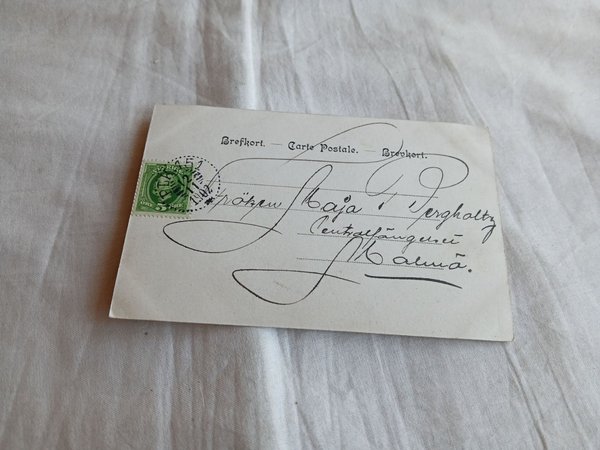 Brefkort. — Carte Postale. — Brevkort.
Fröken Maja Bergholtz
Centralfängelset
Malmö.
1902